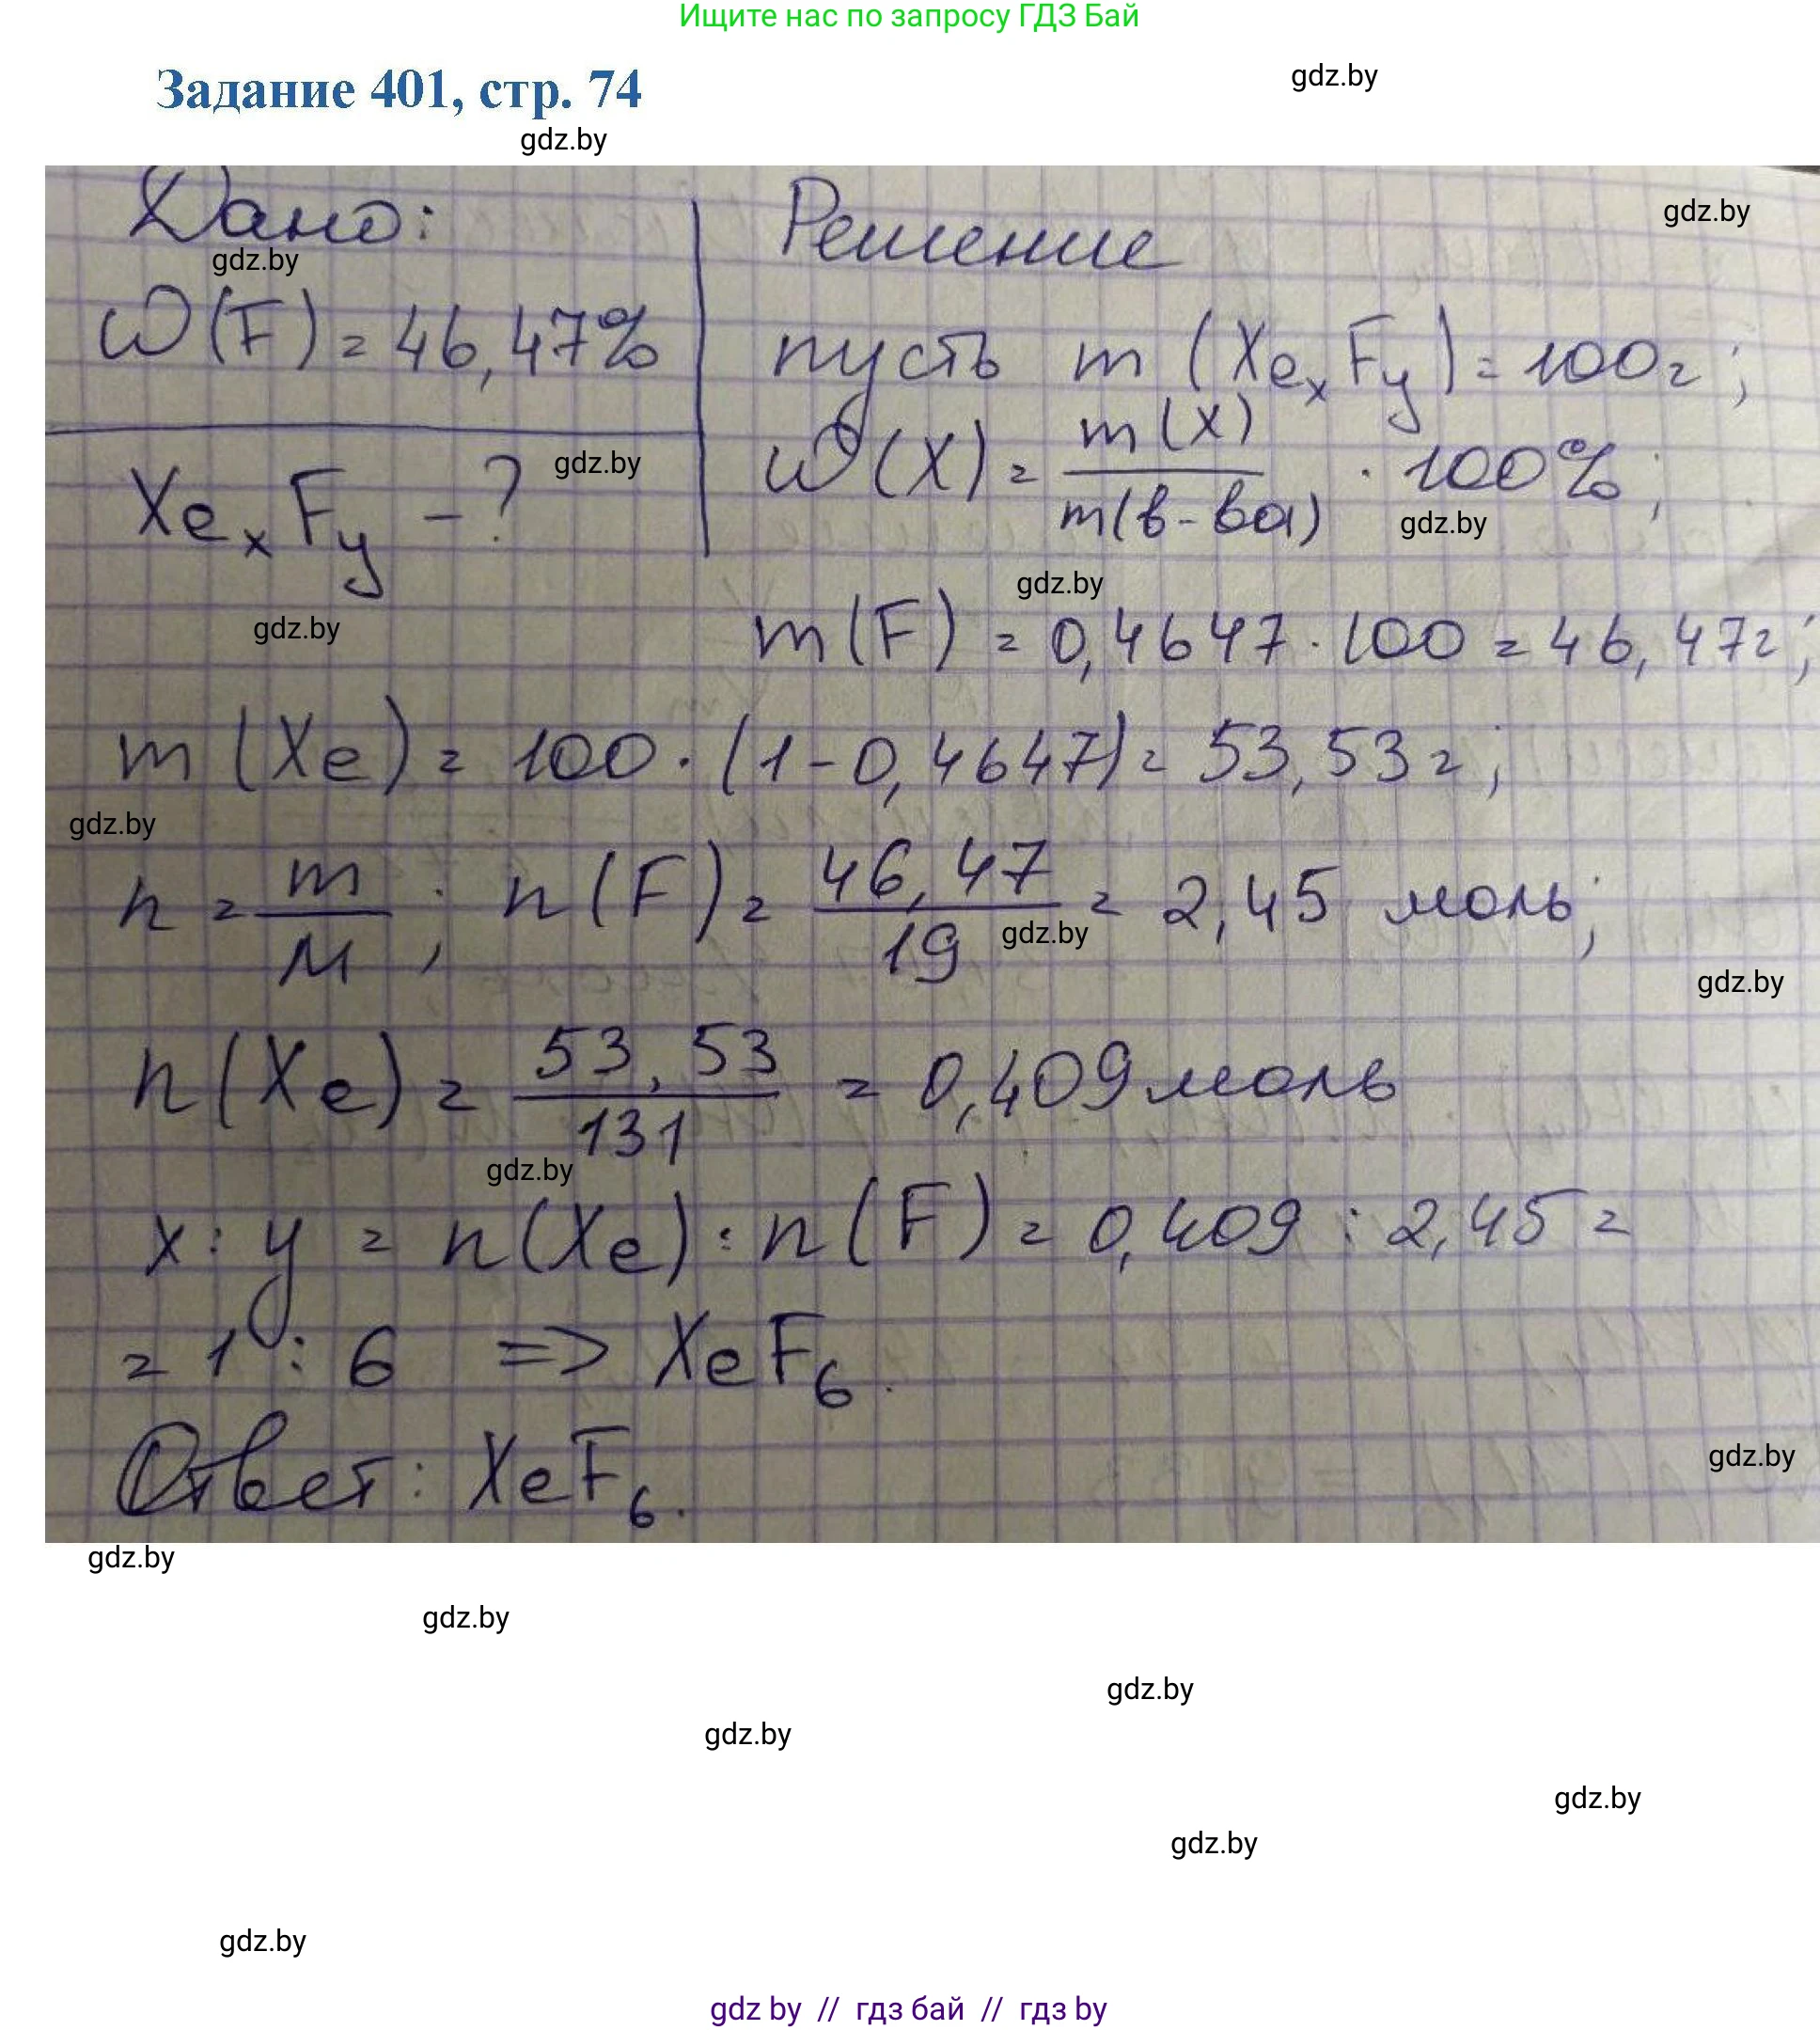 Ищите нас по запросу ГДЗ Бай
gdz.by
Задание 401, стр. 74
gdz.by
Дано:
Решение
gdz.by
gdz.by
ω(F) = 46,47%
пусть m (XeₓFy) = 100г;
XeₓFy - ?
gdz.by
ω(X) = m(X) / m(в-ва) · 100%;
gdz.by
gdz.by
gdz.by
m(F) = 0,4647 · 100 = 46,47г;
m(Xe) = 100 · (1 - 0,4647) = 53,53г;
gdz.by
n = m / M; n(F) = 46,47 / 19 = 2,45 моль;
gdz.by
gdz.by
n(Xe) = 53,53 / 131 = 0,409 моль
gdz.by
x : y = n(Xe) : n(F) = 0,409 : 2,45 =
= 1 : 6 => XeF₆.
Ответ: XeF₆.
gdz.by
gdz.by
gdz.by
gdz.by
gdz.by
gdz.by
gdz.by
gdz.by
gdz by // гдз бай // гдз by